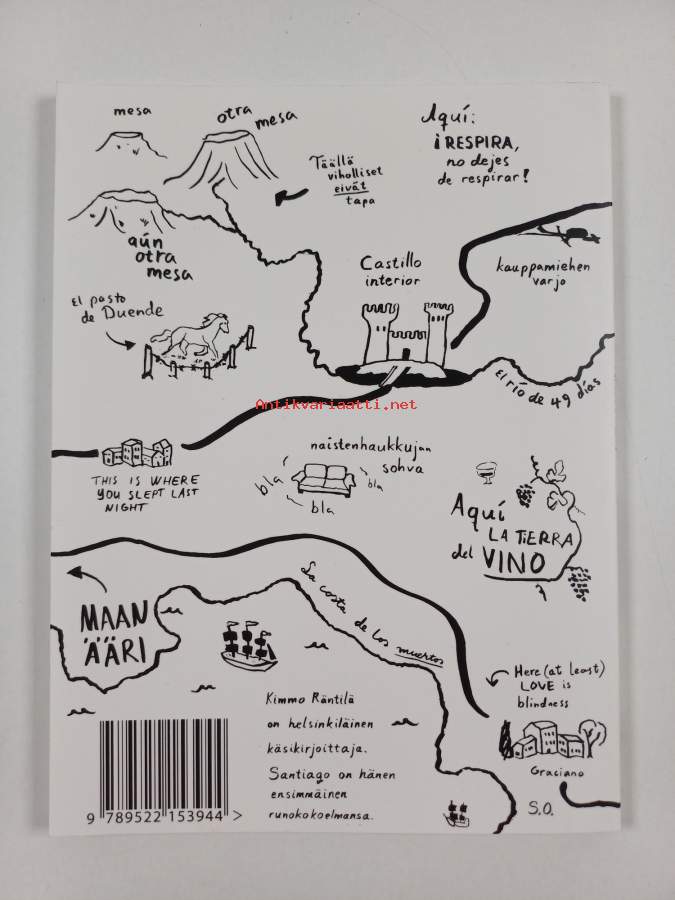 mesa
otra
mesa
Aquí:
¡RESPIRA,
no dejes
de respirar!
Täällä
viholliset
eivät
tapa
aún
otra
mesa
Castillo
interior
kauppamiehen
varjo
El pasto
de Duende
El río de 49 días
Antikvariaatti.net
naistenhaukkujan
sohva
bla
bla
bla
THIS IS WHERE
YOU SLEPT LAST
NIGHT
Aquí
LA TIERRA
del VINO
La costa de los muertos
MAAN
ÄÄRI
Here (at least)
LOVE is
blindness
Graciano
Kimmo Räntilä
on helsinkiläinen
käsikirjoittaja.
Santiago on hänen
ensimmäinen
runokokoelmansa.
9 789522 153944 >
S.O.